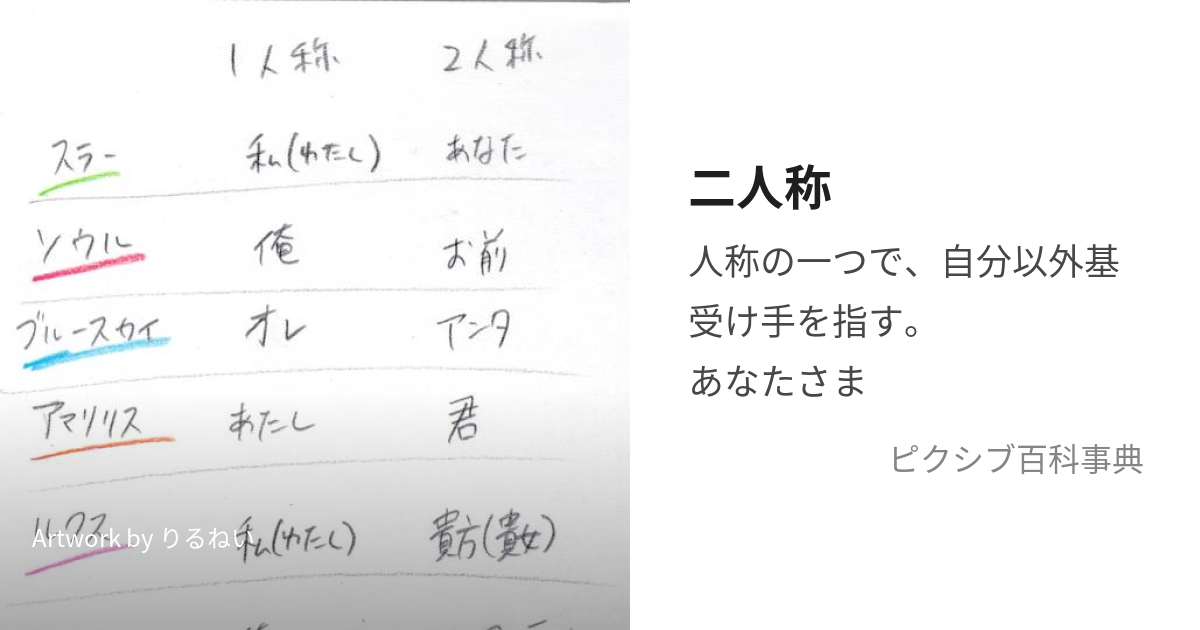 1人称 2人称
スラー 私(わたし) あなた
ソウル 俺 お前
ブルースカイ オレ アンタ
アマリリス あたし 君
私(わたし) 貴方(貴女)
Artwork by りるねい
二人称
人称の一つで、自分以外基
受け手を指す。
あなたさま
ピクシブ百科事典